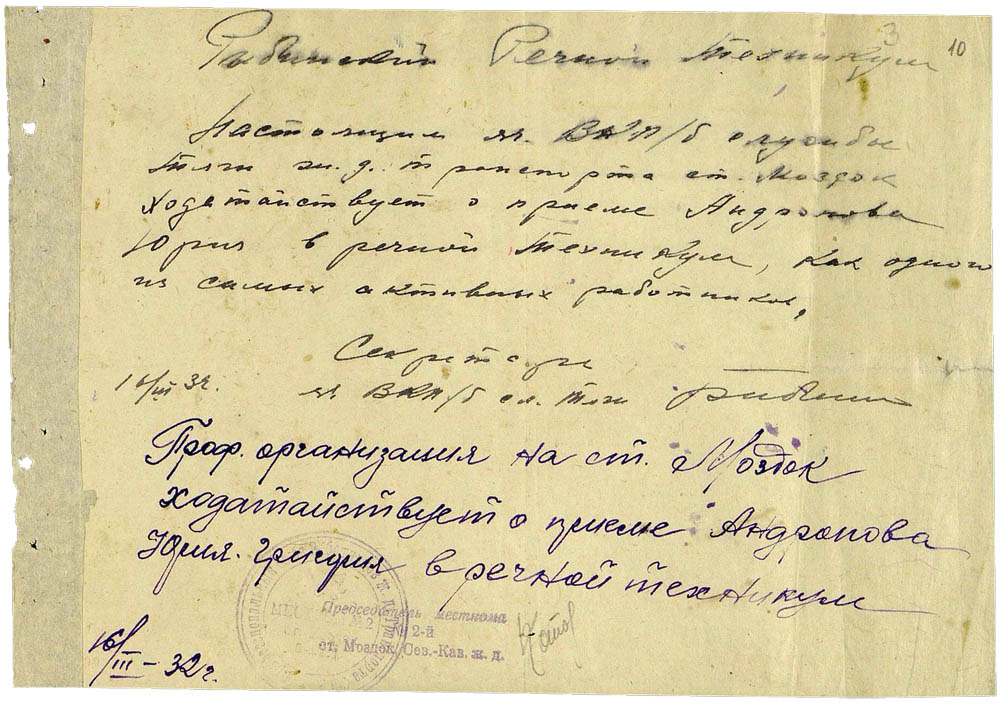 3
10
Рыбинский Речной Техникум
Настоящим яч. ВКП/б службы
тяги ж.д. транспорта ст. Моздок
ходатайствует о приеме Андропова
Юрия в речной Техникум, как одного
из самых активных работников,
Секретарь
16/III 32.
яч. ВКП/б сл. тяги
Проф. организация на ст. Моздок
ходатайствует о приеме Андропова
Юрия в речной техникум
Председатель месткома
№ 2-й
ст. Моздок, Сев.-Кав. ж. д.
16/III – 32 г.